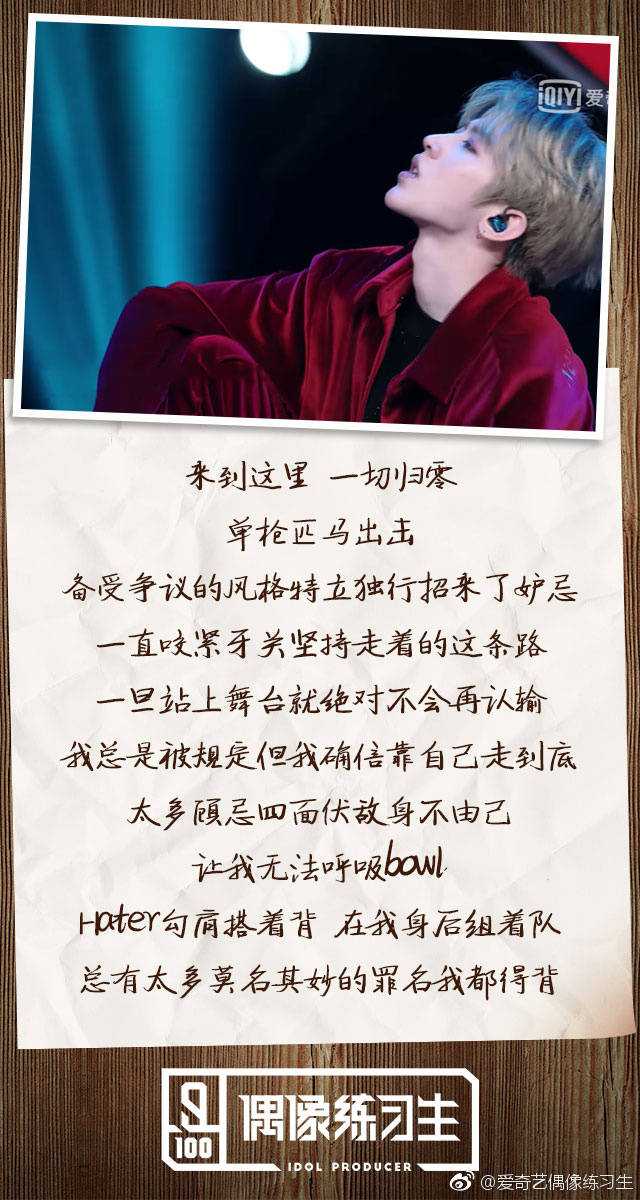 iQIYI 爱奇
来到这里 一切归零
单枪匹马出击
备受争议的风格特立独行招来了妒忌
一直咬紧牙关坚持走着的这条路
一旦站上舞台就绝对不会再认输
我总是被规定但我确信靠自己走到底
太多顾忌四面伏敌身不由己
让我无法呼吸bowl
Hater勾肩搭着背 在我身后组着队
总有太多莫名其妙的罪名我都得背
100 偶像练习生
IDOL PRODUCER
@爱奇艺偶像练习生